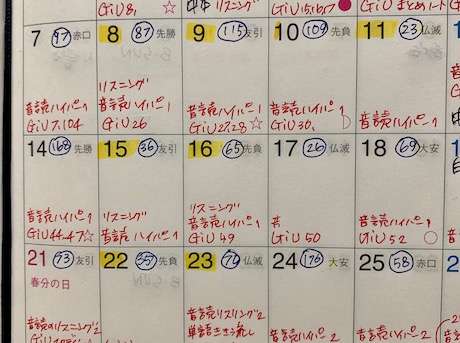 GiU 8, ☆
リスニング
GiU 15,16,17
7 97 赤口
8 87 先勝
9 115 友引
10 109 先負
11 23 仏滅
音読ハイパー1
GiU 7,104
リスニング
音読ハイパー1
GiU 26
音読ハイパー1
GiU 27,28 ☆
音読ハイパー1
GiU 30,
音読ハイパー1
14 168 先勝
15 36 友引
16 65 先負
17 26 仏滅
18 69 大安
音読ハイパー1
GiU 44-47 ☆
リスニング
音読ハイパー1
リスニング
音読ハイパー1
GiU 49
音
GiU 50
音読ハイパー1
GiU 52 ○
21 73 友引
春分の日
22 357 先負
23 仏滅
24 176 大安
25 58 赤口
音読のリスニング2
音読リスリング2
単語きき流し
音読ハイパー2
音読ハイパー2